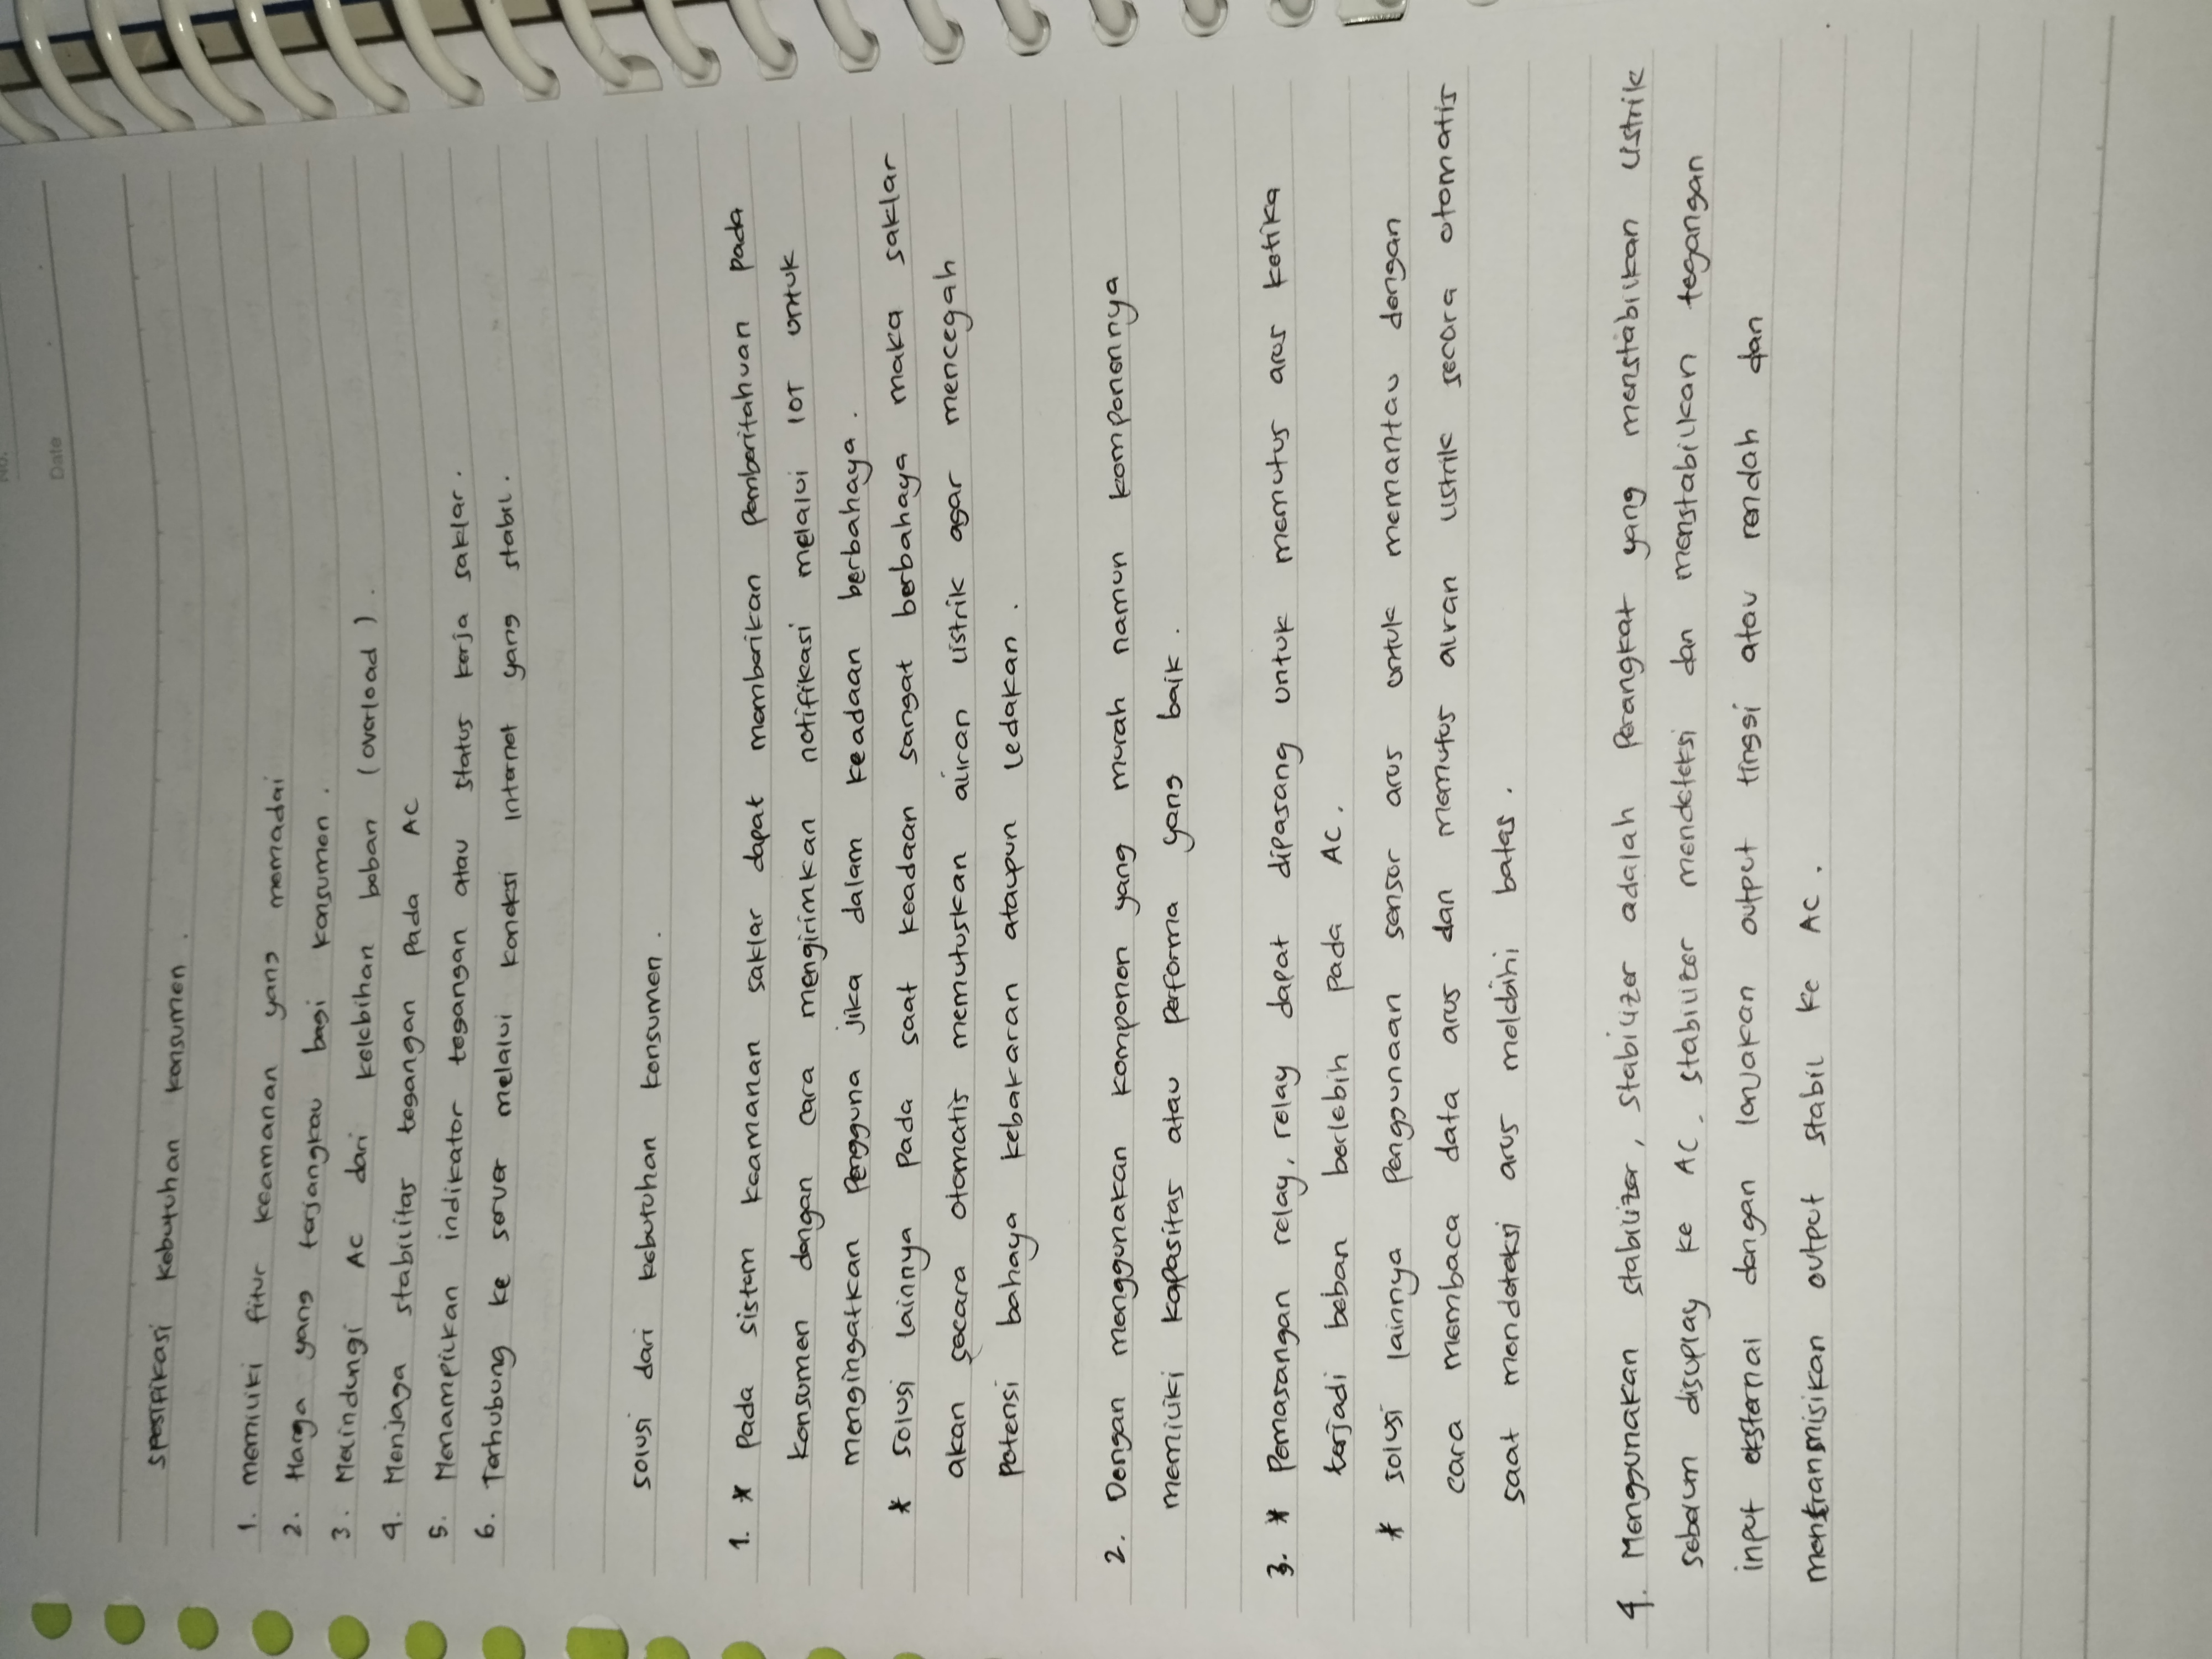 No.
Date
spesifikasi kebutuhan konsumen.
1. memiliki fitur keamanan yang memadai
2. Harga yang terjangkau bagi konsumen.
3. Melindungi AC dari kelebihan beban (overload).
4. Menjaga stabilitas tegangan pada AC
5. Menampilkan indikator tegangan atau status kerja saklar.
6. Terhubung ke server melalui koneksi internet yang stabil.
solusi dari kebutuhan konsumen.
1. * Pada sistem keamanan saklar dapat memberikan pemberitahuan pada
konsumen dengan cara mengirimkan notifikasi melalui IOT untuk
mengingatkan pengguna jika dalam keadaan berbahaya.
* solusi lainnya pada saat keadaan sangat berbahaya maka saklar
akan secara otomatis memutuskan aliran listrik agar mencegah
potensi bahaya kebakaran ataupun ledakan.
2. Dengan menggunakan komponen yang murah namun komponennya
memiliki kapasitas atau performa yang baik.
3. * Pemasangan relay, relay dapat dipasang untuk memutus arus ketika
terjadi beban berlebih pada AC.
* solusi lainnya penggunaan sensor arus untuk memantau dengan
cara membaca data arus dan memutus aliran listrik secara otomatis
saat mendeteksi arus melebihi batas.
4. Menggunakan stabilizer, stabilizer adalah perangkat yang menstabilkan listrik
sebelum disuplay ke AC, stabilizer mendeteksi dan menstabilkan tegangan
input eksternal dengan lonjakan output tinggi atau rendah dan
mentransmisikan output stabil ke AC.